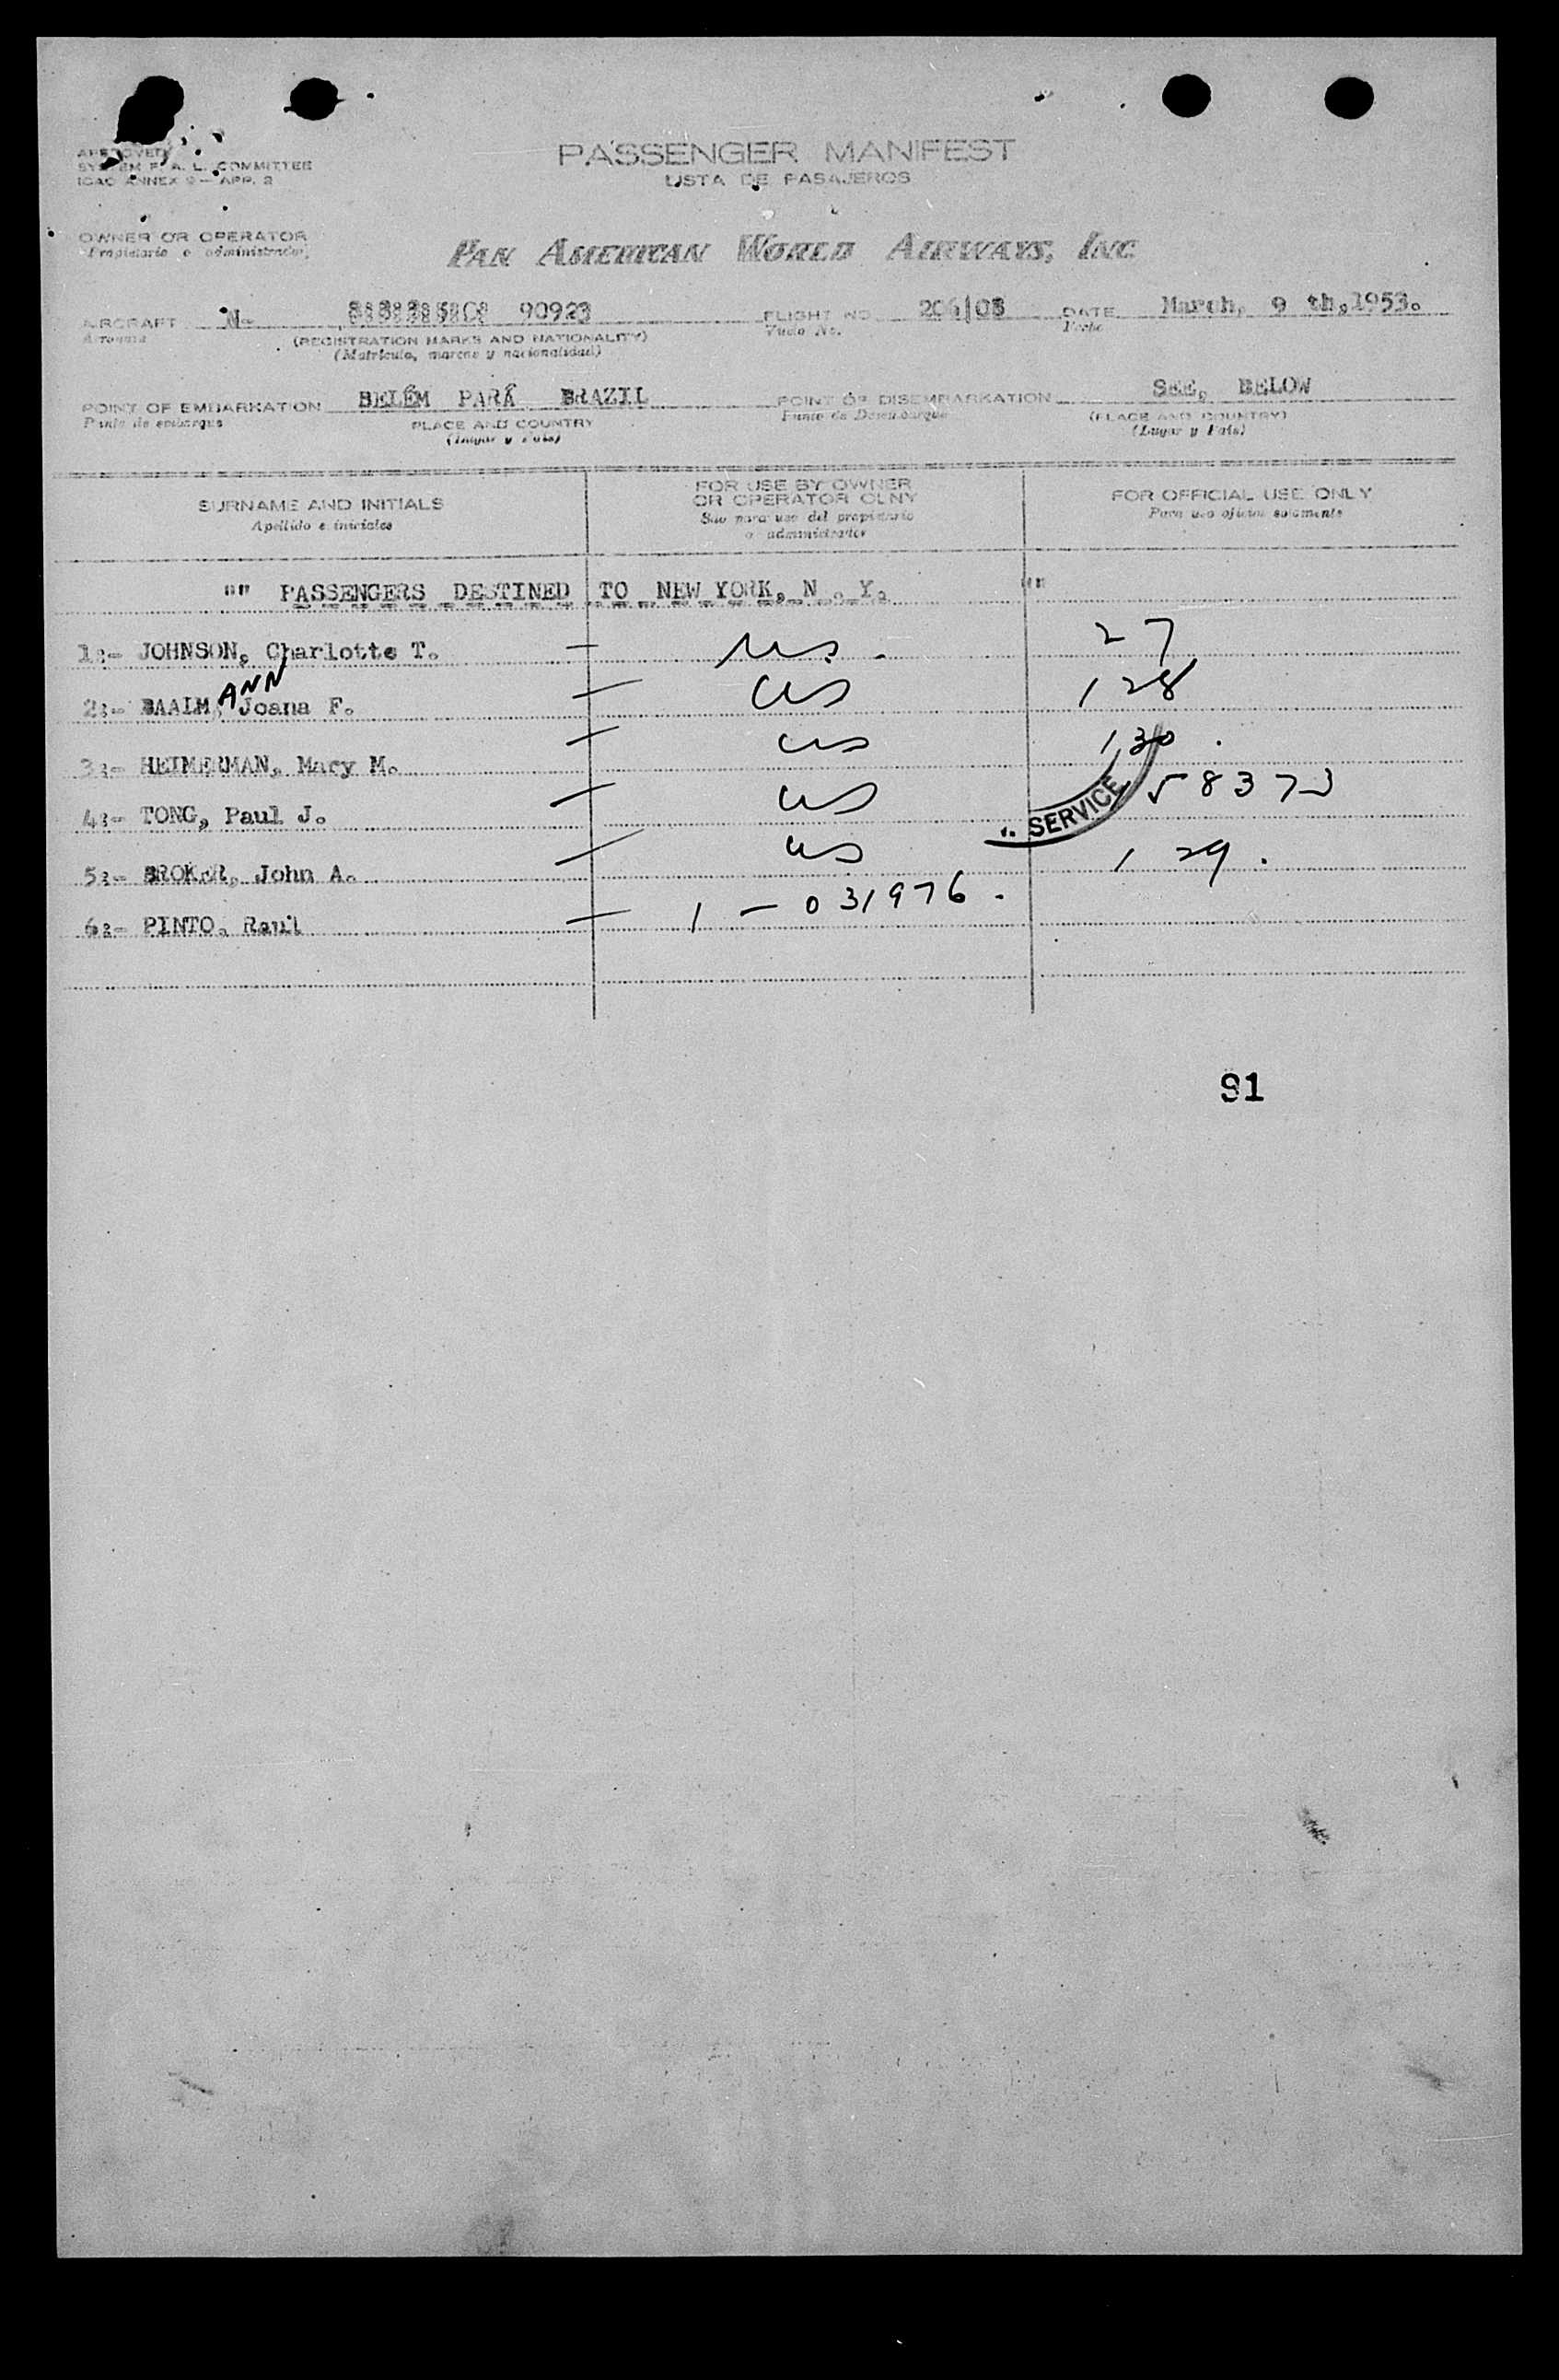 APPROVED
SYSTEM F. A. L. COMMITTEE
ICAO ANNEX 9 — APP. 2
PASSENGER MANIFEST
LISTA DE PASAJEROS
OWNER OR OPERATOR
Propietario o administrador
PAN AMERICAN WORLD AIRWAYS, INC
AIRCRAFT N- 90923 FLIGHT NO. 204/08 DATE March, 9 th,1953.
Aeronave Vuelo No. Fecha
(REGISTRATION MARKS AND NATIONALITY)
(Matrícula, marcas y nacionalidad)
POINT OF EMBARKATION BELÉM PARÁ BRAZIL POINT OF DISEMBARKATION SEE, BELOW
Punto de embarque PLACE AND COUNTRY Punto de Desembarque (PLACE AND COUNTRY)
(Lugar y País) (Lugar y País)
SURNAME AND INITIALS FOR USE BY OWNER OR OPERATOR OLNY FOR OFFICIAL USE ONLY
Apellido e iniciales Sao para uso del propietario o administrador Para uso oficial solamente
"" PASSENGERS DESTINED TO NEW YORK, N . Y. ""
1:- JOHNSON, Charlotte T. — us. - 27
ANN
2:- BAALM, Joana F. — us 128
3:- HEIMERMAN, Mary M. — us 130 .
SERVICE
4:- TONG, Paul J. — us 58373
5:- BROKER, John A. — us 129.
6:- PINTO, Raul — 1 - 031976 .
91